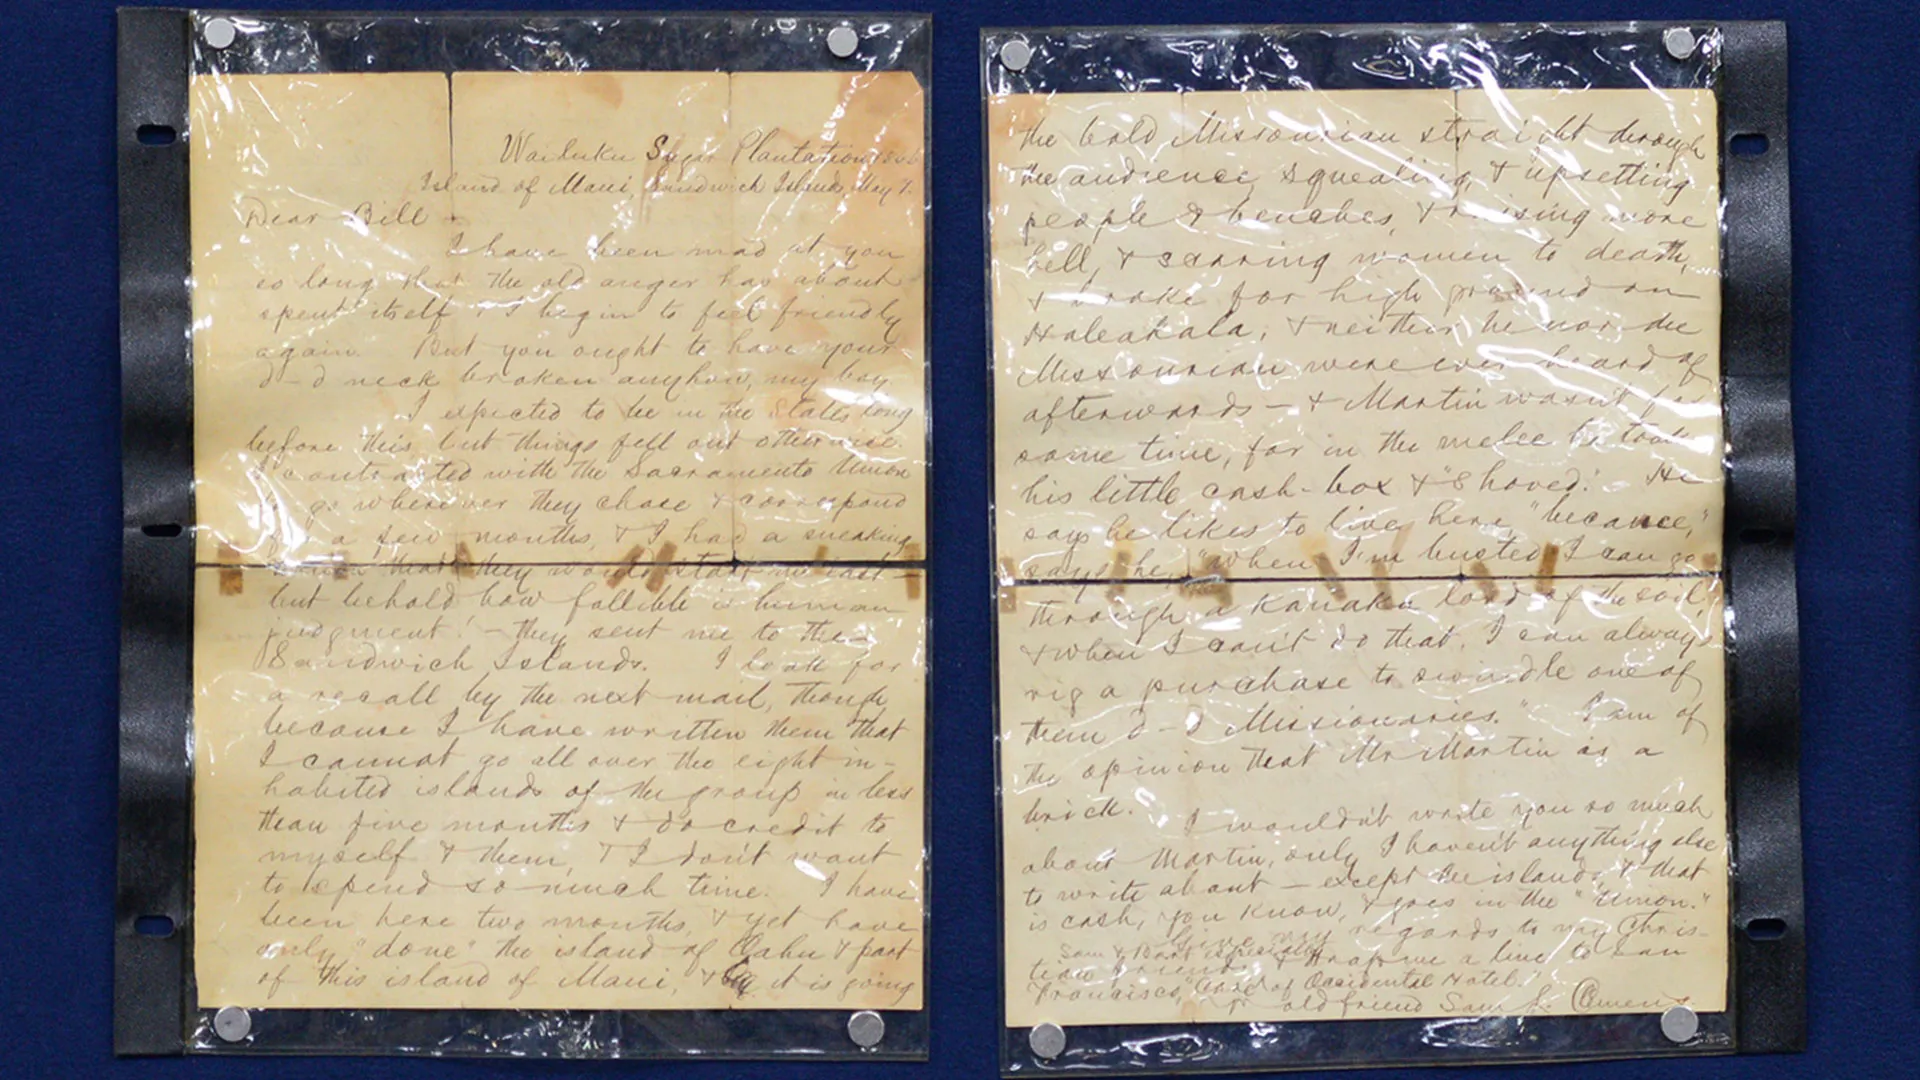 Wailuku Sugar Plantation, 1866
Island of Maui, Sandwich Islands, May 7.
Dear Bill
I have been mad at you
so long that the old anger has about
spent itself & I begin to feel friendly
again. But you ought to have your
d—d neck broken anyhow, my boy.
I expected to be in the States long
before this, but things fell out otherwise.
I contracted with the Sacramento Union
to go wherever they chose & correspond
for a few months, & I had a sneaking
notion that they would start me east—
but behold how fallible is human
judgment! — they sent me to the
Sandwich Islands. I look for
a recall by the next mail, though,
because I have written them that
I cannot go all over the eight in-
habited islands of the group in less
than five months & do credit to
myself & them, & I don't want
to spend so much time. I have
been here two months, & yet have
only "done" the island of Oahu & part
of this island of Maui, & it is going
the bold Missourian straight through
the audience squealing, & upsetting
people & benches, & raising more
hell, & scaring women to death,
& broke for high ground on
Haleakala, & neither he nor the
Missourian were ever heard of
afterwards — & Martin wasn't for
some time, for in the melee he took
his little cash-box & "shoved." He
says he likes to live here, "because,"
says he, "when I'm busted I can go
through a Kanaka lord of the soil,
& when I can't do that, I can always
rig a purchase to swindle one of
them d—d Missionaries." I am of
the opinion that Mr Martin is a
brick.
I wouldn't write you so much
about Martin, only I haven't anything else
to write about — except the islands & that
is cash, you know, & goes in the "Union."
Give my regards to my Chris-
tian friends & drop me a line to San
Francisco, "Care of Occidental Hotel."
Yr old friend Sam L. Clemens